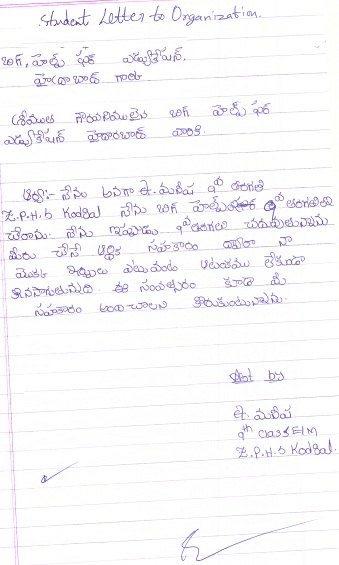 Student Letter to Organization.
బిగ్, హెల్ప్ ఫర్ ఎడ్యుకేషన్,
హైదరాబాద్ గారికి
శ్రీయుత గౌరవనీయులైన బిగ్ హెల్ప్ ఫర్
ఎడ్యుకేషన్ హైదారబాద్ వారికి
ఆర్య:- నేను అనగా ఈ. మనీష 9వ తరగతి
Z.P.H.S Kodgal నేను బిగ్ హెల్ప్ 9వ తరగతిలో
చేరాను. నేను ఇప్పుడు 9వ తరగతి చదువుతున్నాను
మీరు చేసే ఆర్థిక సహకారం ద్వారా నా
యొక్క ఎటువంటి ఆటంకము లేకుండా
కొనసాగుతున్నది. ఈ సంవత్సరం కూడా మీ
సహకారం అందించాలని కోరుకుంటున్నాను.
by
ఈ. మనీష
9th class E/M
Z.P.H.S Kodgal.